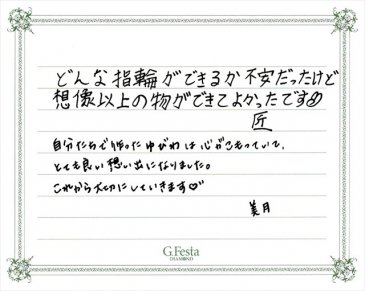 どんな指輪ができるか不安だったけど
想像以上の物ができてよかったです
匠
自分たちで作ったゆびわは心がこもっていて、
とても良い思い出になりました。
これから大切にしていきます♡
美月
G.Festa
DIAMOND